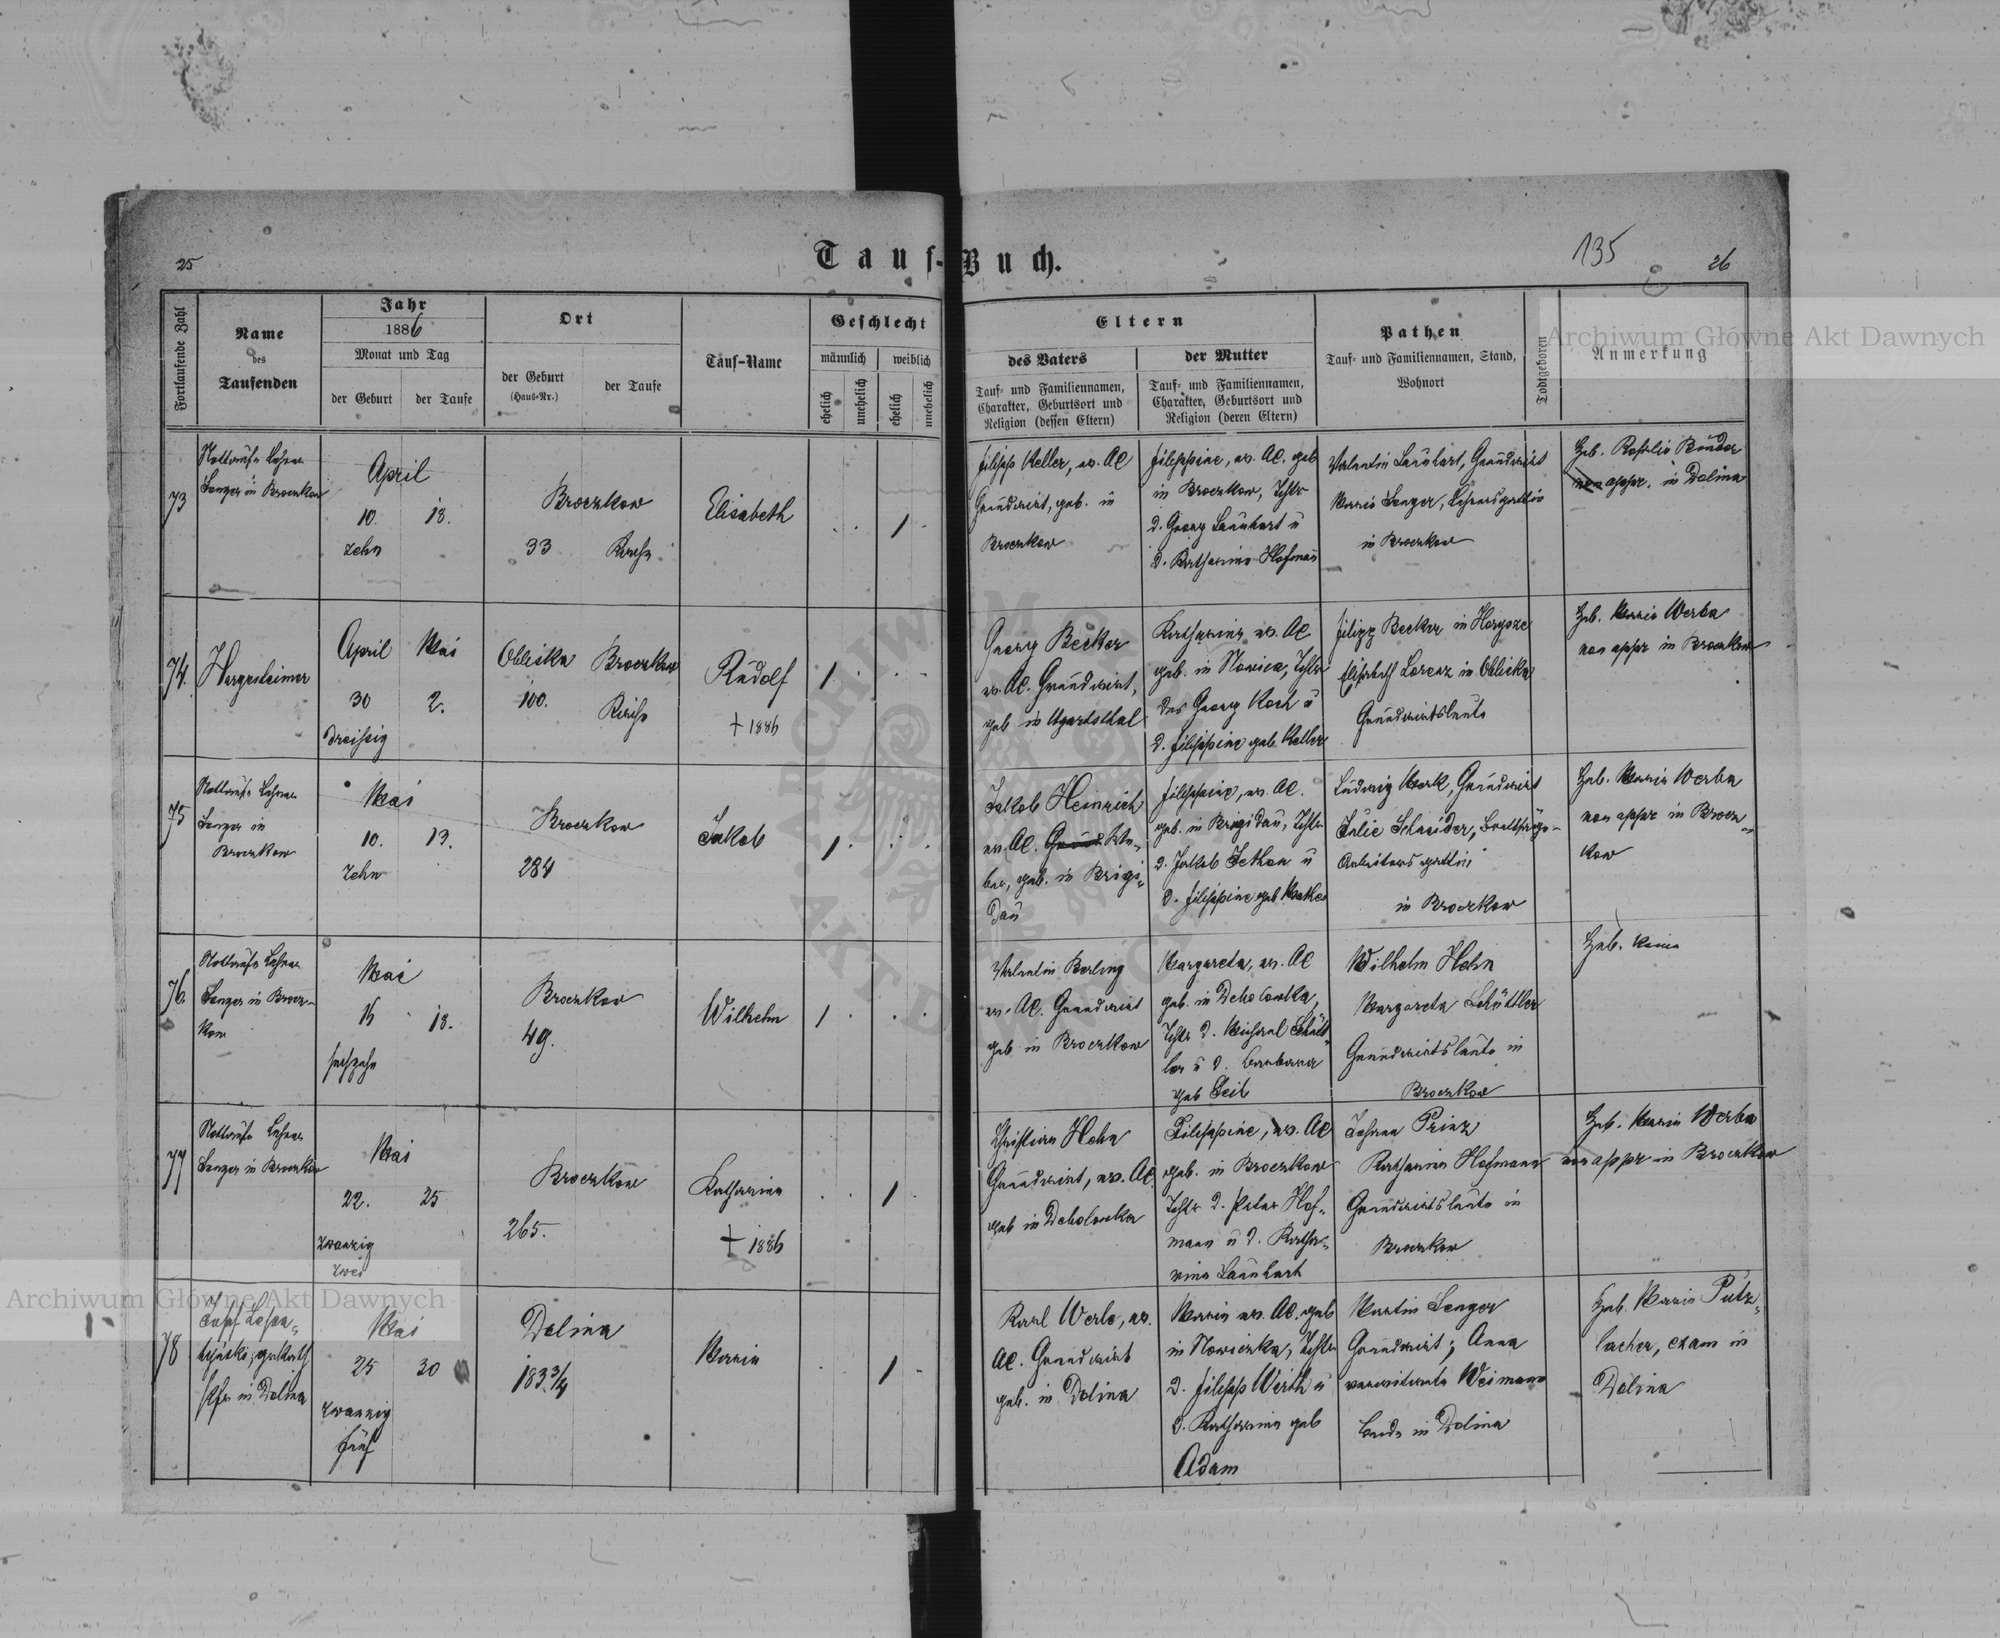 Tauf-Buch.
25
135
26
Archiwum Główne Akt Dawnych
Fortlaufende Zahl
Name
des
Taufenden
Jahr
1886
Monat und Tag
der Geburt
der Taufe
Ort
der Geburt
(Haus-Nr.)
der Taufe
Tauf-Name
Geschlecht
männlich
weiblich
ehelich
unehelich
ehelich
unehelich
Eltern
des Vaters
Tauf- und Familiennamen,
Charakter, Geburtsort und
Religion (dessen Eltern)
der Mutter
Tauf- und Familiennamen,
Charakter, Geburtsort und
Religion (deren Eltern)
Pathen
Tauf- und Familiennamen, Stand,
Wohnort
Todtgeboren
Anmerkung
73
Nottaufe Lehrer
Senger in Broczkow
April
10. 18.
zehn
Broczkow
33 Kirche
Elisabeth
1
Filipp Keller, ev. AC
Grundwirt, geb. in
Broczkow
Filippine, ev. AC. geb
in Broczkow, Tchtr
d. Georg Launhart u
d. Katharina Hofman
Valentin Launhart, Grundwirt
Maria Senger, Lehrersgattin
in Broczkow
Heb. Rosalia Bender
non appr. in Dolina
74.
Hargesheimer
April Mai
30 2.
dreißig
Obliska Broczkow
100. Kirche
Rudolf
† 1886
1
Georg Becker
ev. AC. Grundwirt,
geb in Ugartsthal
Katharina ev. AC
geb. in Nowica, Tchtr
des Georg Koch u
d. Filippine geb Keller
Filipp Becker in Horysze
Elisabeth Lorenz in Obliska
Grundwirtsleute
Heb. Maria Werba
non appr in Broczkow
75
Nottaufe Lehrer
Senger in
Broczkow
Mai
10. 13.
zehn
Broczkow
284
Jakob
1
Jakob Heinrich
ev. AC.
ber, geb. in Brigi-
dau
Filippine, ev. AC.
geb. in Brigidau, Tchtr
d. Jakob u
d. Filippine geb
Ludwig Merk, Grundwirt
Julie Schneider, Brettsäge-
Arbeiters gattin
in Broczkow
Heb. Maria Werba
non appr in Brocz-
kow
76.
Nottaufe Lehrer
Senger in Brocz-
kow
Mai
16 18.
sechzehn
Broczkow
49.
Wilhelm
1
Valentin Berling
ev. AC. Grundwirt
geb in Broczkow
Margareta, ev. AC
geb. in Debolowka,
Tchtr d. Michael Schütt-
ler u d. Barbara
geb Seib
Wilhelm Hehn
Margareta Schüttler
Grundwirtsleute in
Broczkow
Heb. keine
77
Nottaufe Lehrer
Senger in Broczkow
Mai
22. 25
zwanzig
zwei
Broczkow
265.
Katharina
† 1886
1
Christian Hehn
Grundwirt, ev. AC
geb in Debolowka
Filippine, ev. AC
geb. in Broczkow
Tchtr d. Peter Hof-
mann u d. Katha-
rina Launhart
Johann Prinz
Katharina Hofmann
Grundwirtsleute in
Broczkow
Heb. Maria Werba
non appr in Broczkow
78
Josef
in Dolina
Mai
25 30
zwanzig
fünf
Dolina
183 3/4
Maria
1
Karl Werle, ev.
AC. Grundwirt
geb. in Dolina
Maria ev. AC. geb
in Nowiczka, Tchtr
d. Filipp Wirth u
d. Katharina geb
Adam
Martin Senger
Grundwirt; Anna
verwitwete Weimann
beide in Dolina
Heb. Maria Putz-
lacher, exam in
Dolina
Archiwum Główne Akt Dawnych